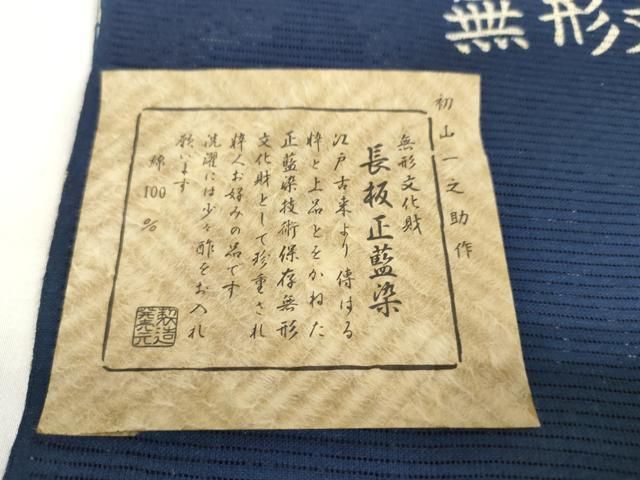 無形
初山一之助作
無形文化財
長板正藍染
江戸古来より傳はる
粋と上品とをかねた
正藍染技術保存無形
文化財として珍重され
粋人お好みの品です
洗濯には少々酢をお入れ
願います
綿100%
製造
発売元